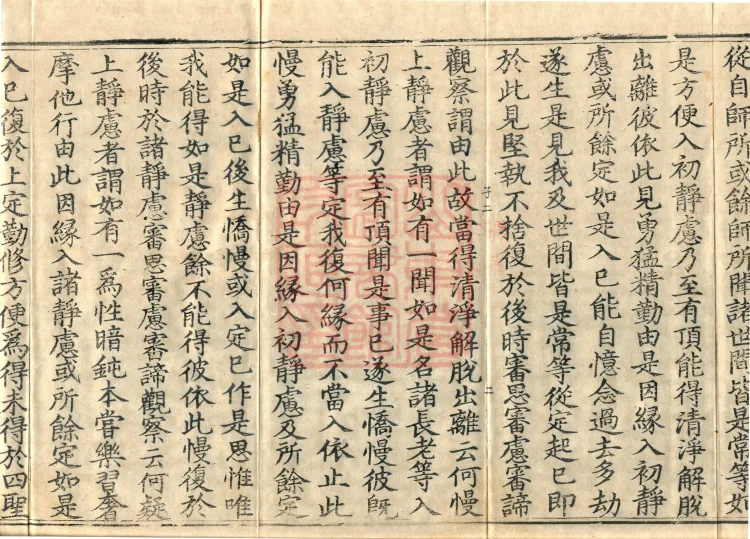 從自師所或餘師所聞諸世間皆是常等如
是方便入初靜慮乃至有頂能得清淨解脫
出離彼依此見勇猛精勤由是因緣入初靜
慮或所餘定如是入已能自憶念過去多劫
遂生是見我及世間皆是常等從定起已即
於此見堅執不捨復於後時審思審慮審諦
子二 二
觀察謂由此故當得清淨解脫出離云何慢
上靜慮者謂如有一聞如是名諸長老等入
初靜慮乃至有頂聞是事已遂生憍慢彼既
能入靜慮等定我復何緣而不當入依止此
慢勇猛精勤由是因緣入初靜慮及所餘定
如是入已後生憍慢或入定已作是思惟唯
我能得如是靜慮餘不能得彼依此慢復於
後時於諸靜慮審思審慮審諦觀察云何疑
上靜慮者謂如有一爲性暗鈍本嘗樂習奢
摩他行由此因緣入諸靜慮或所餘定如是
入已復於上定勤修方便爲得未得於四聖